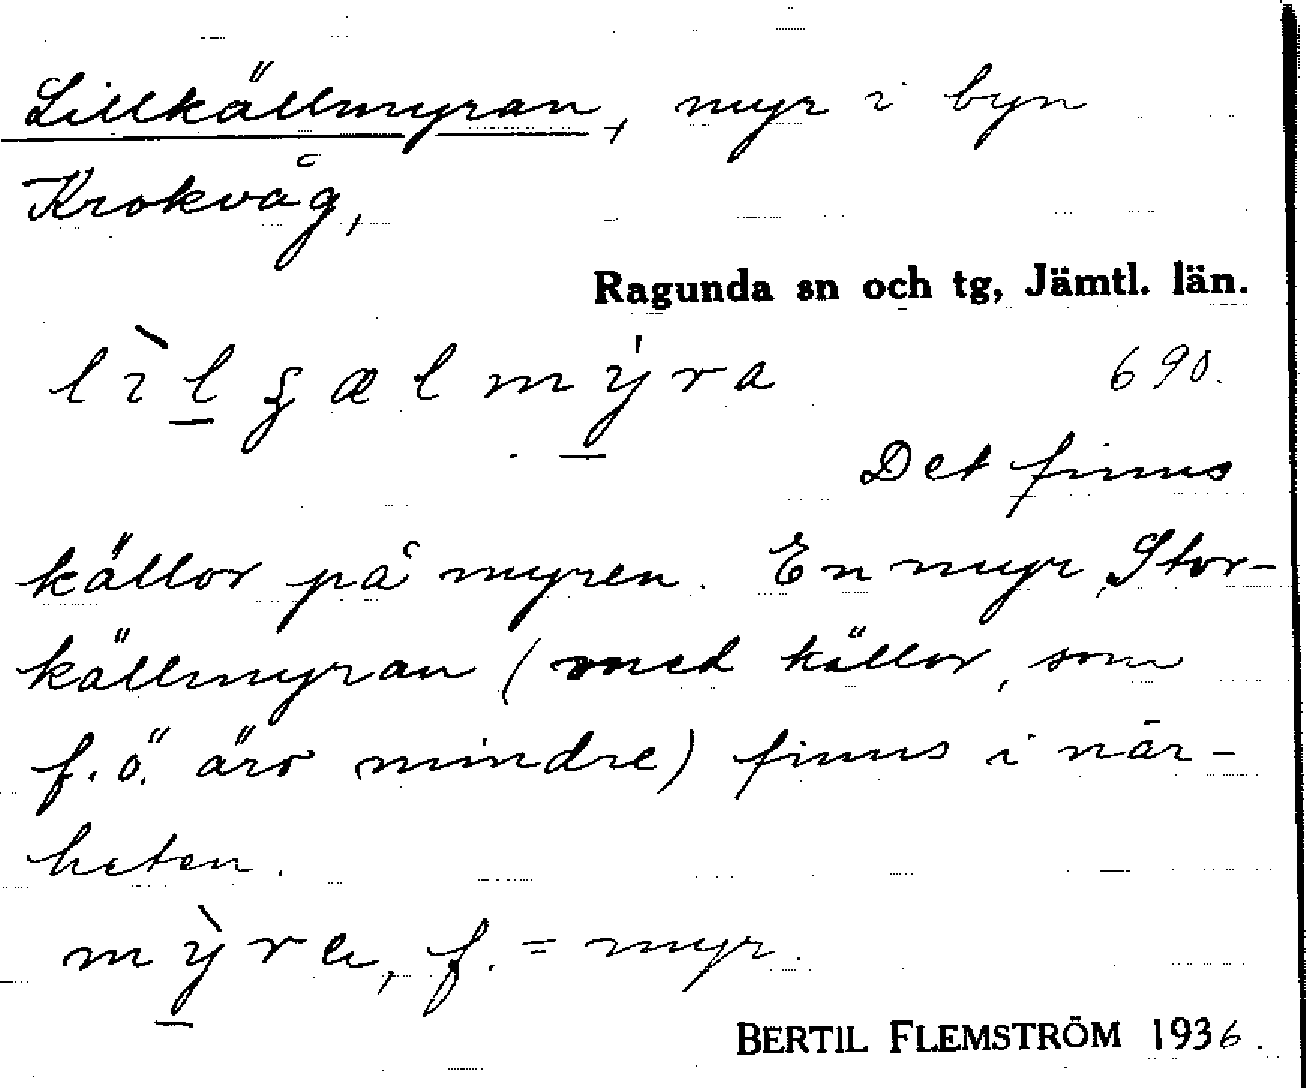 Lillkällmyran, myr i byn
Krokvåg,
Ragunda sn och tg, Jämtl. län.
lìlʂælmýra 690.
Det finns
källor på myren. En myr, Stor-
källmyran (med källor, som
f. ö. äro mindre) finns i när-
heten.
mỳra, f. = myr.
BERTIL FLEMSTRÖM 1936.